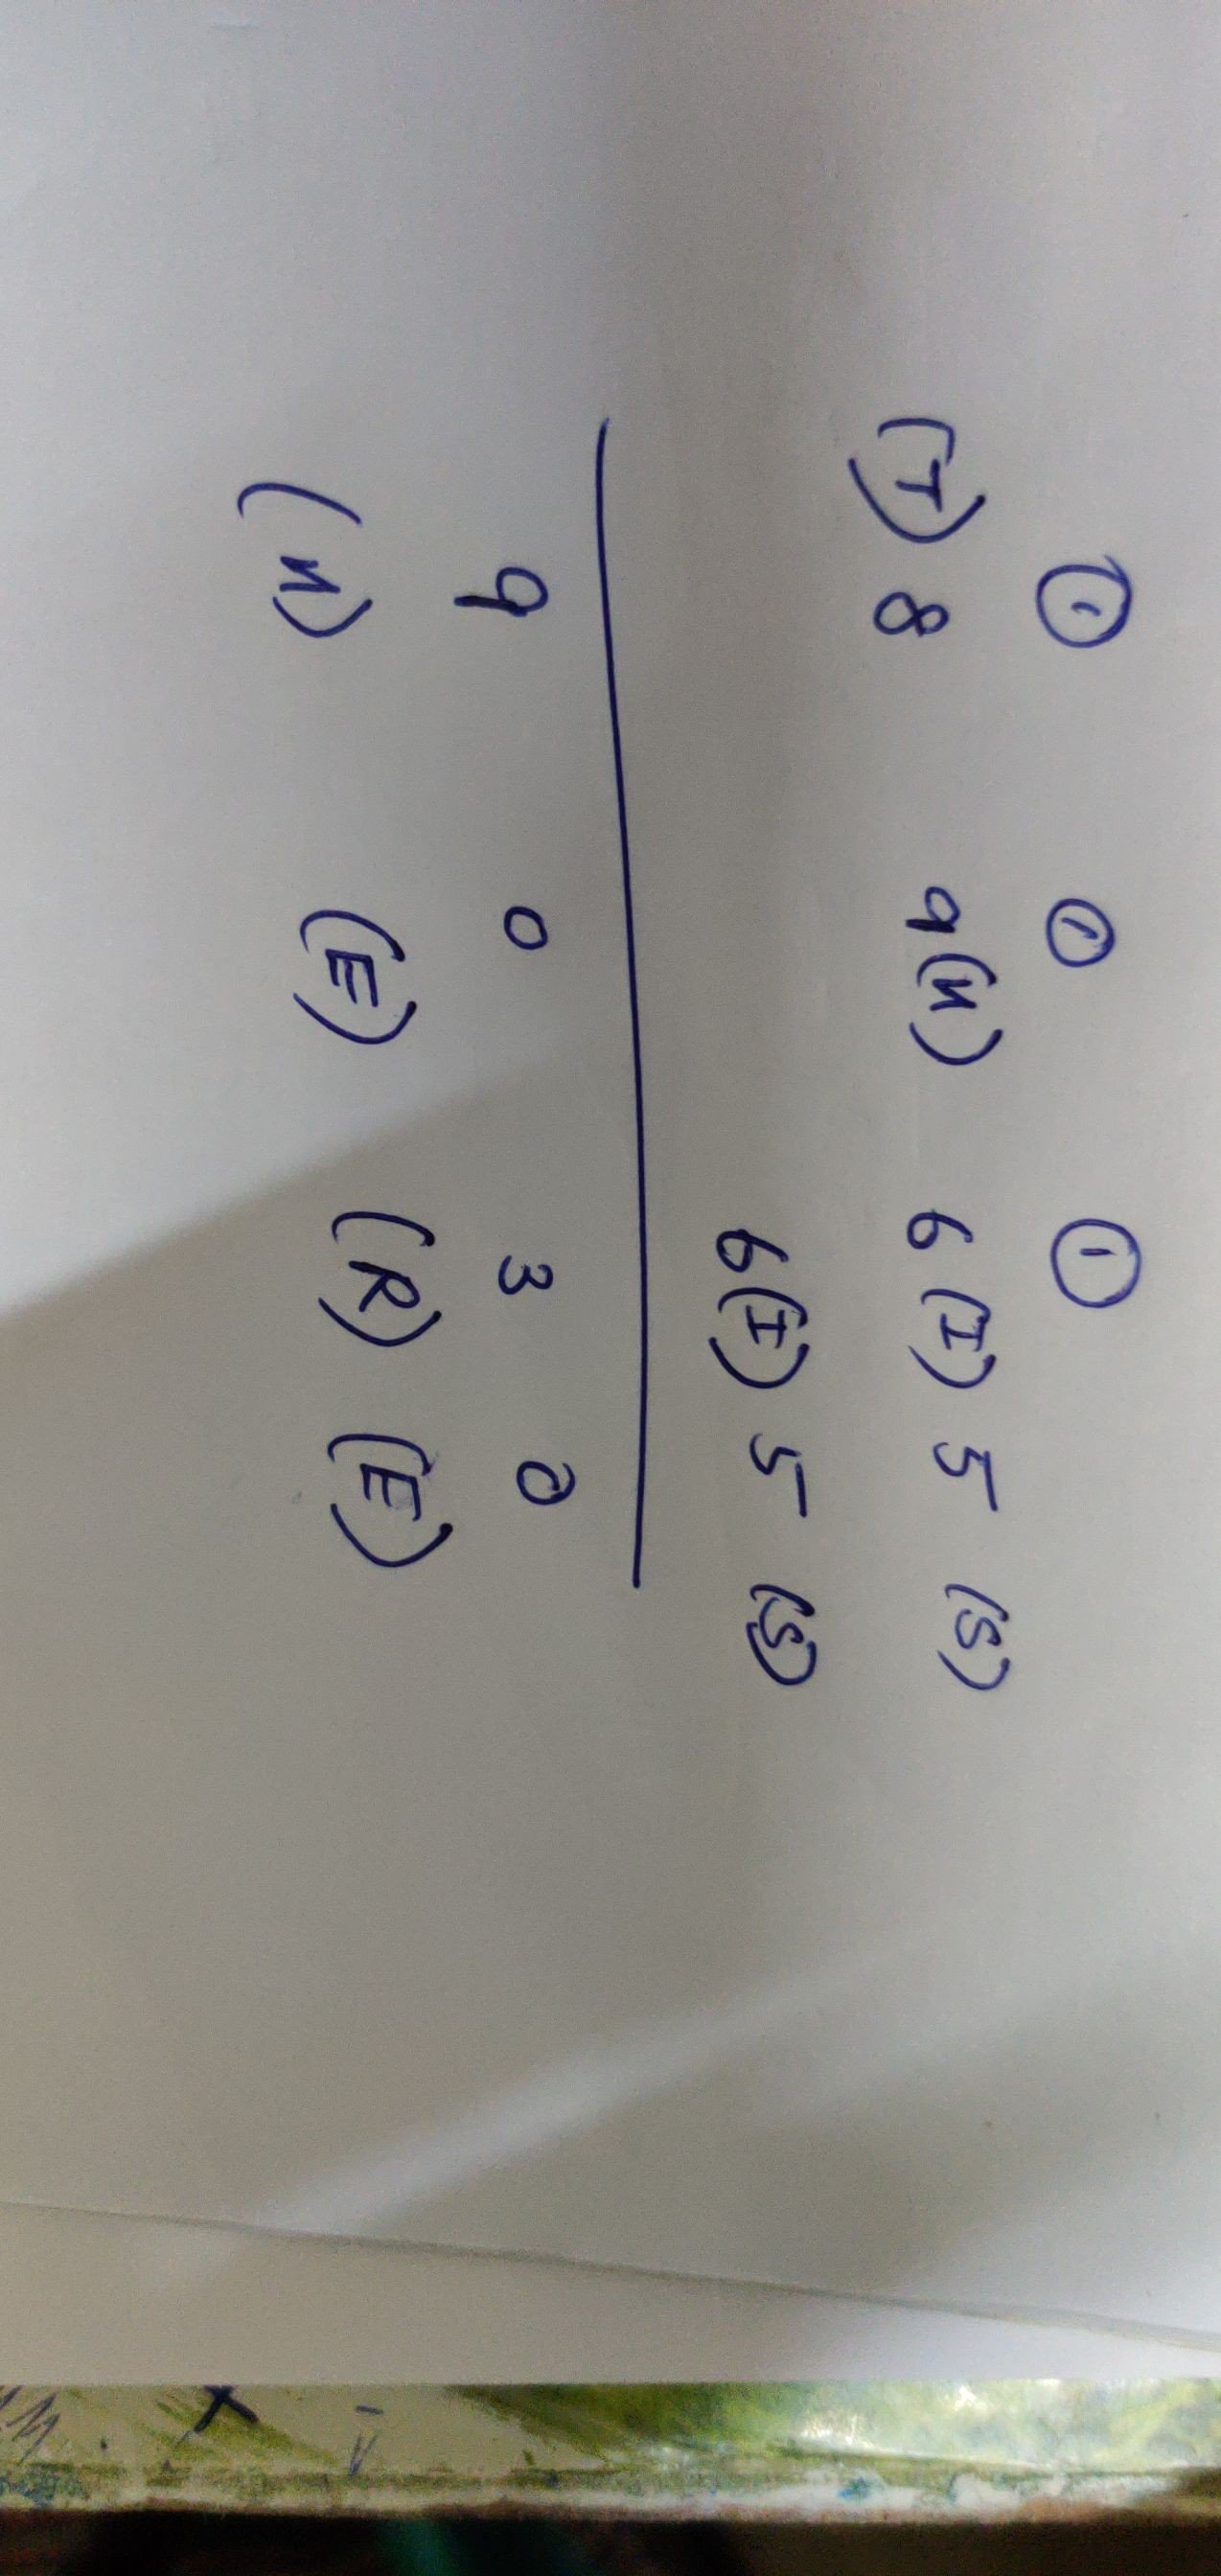 ① ① ①
(T) 8 9 (H) 6 (I) 5 (S)
6 (I) 5 (S)
9 0 3 0
(H) (E) (R) (E)